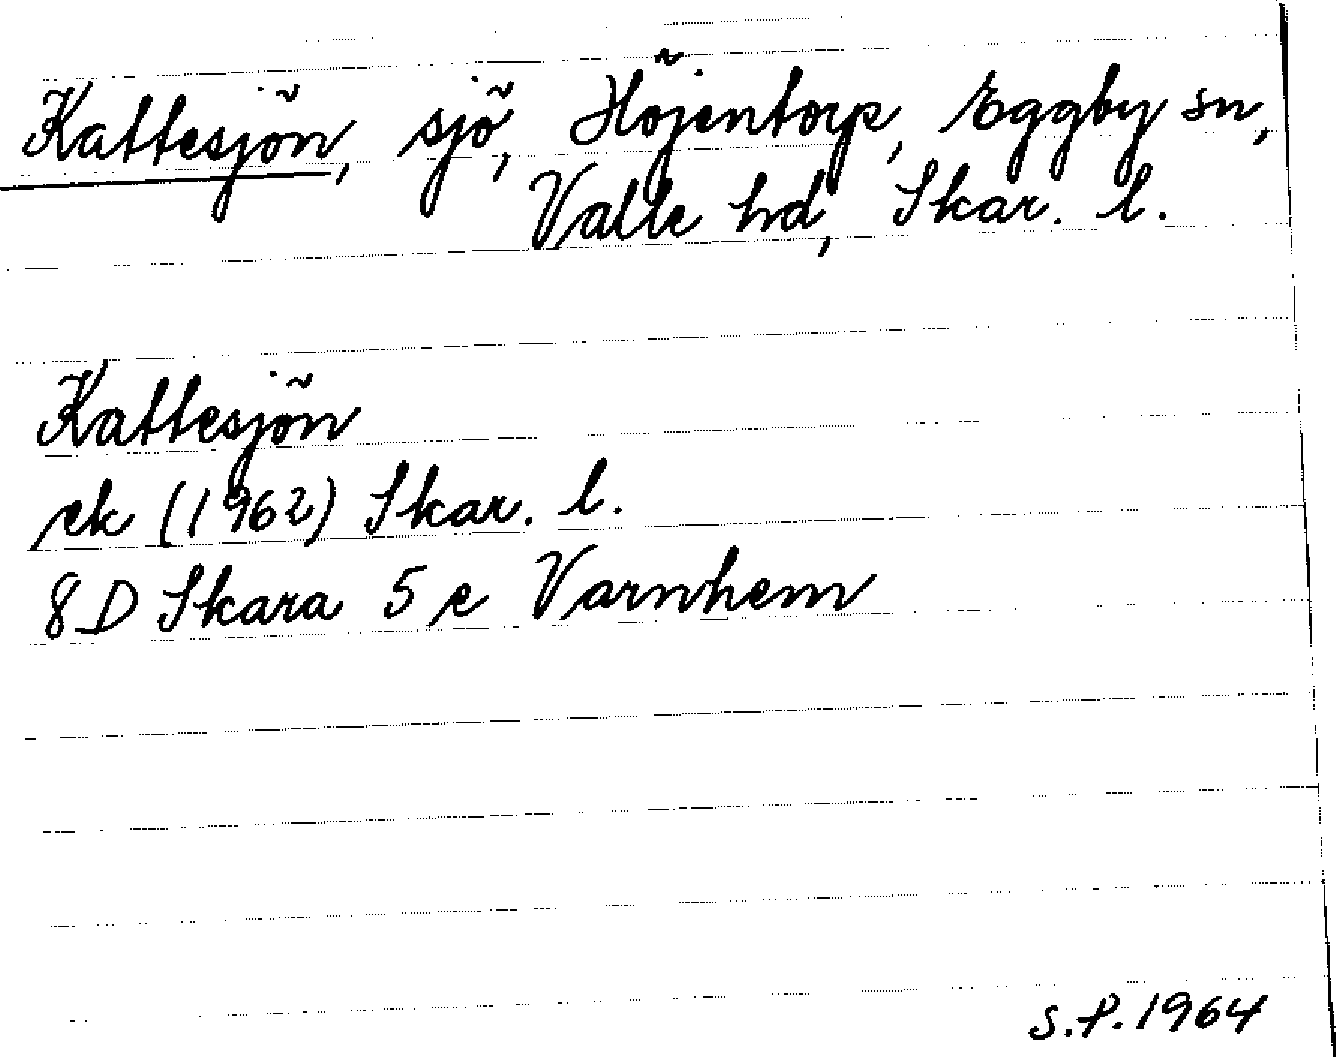 Kattesjön, sjö, Höjentorp, Eggby sn,
Valle hd, Skar. l.
Kattesjön
ek (1962) Skar. l.
8D Skara 5 e Varnhem
S.P. 1964